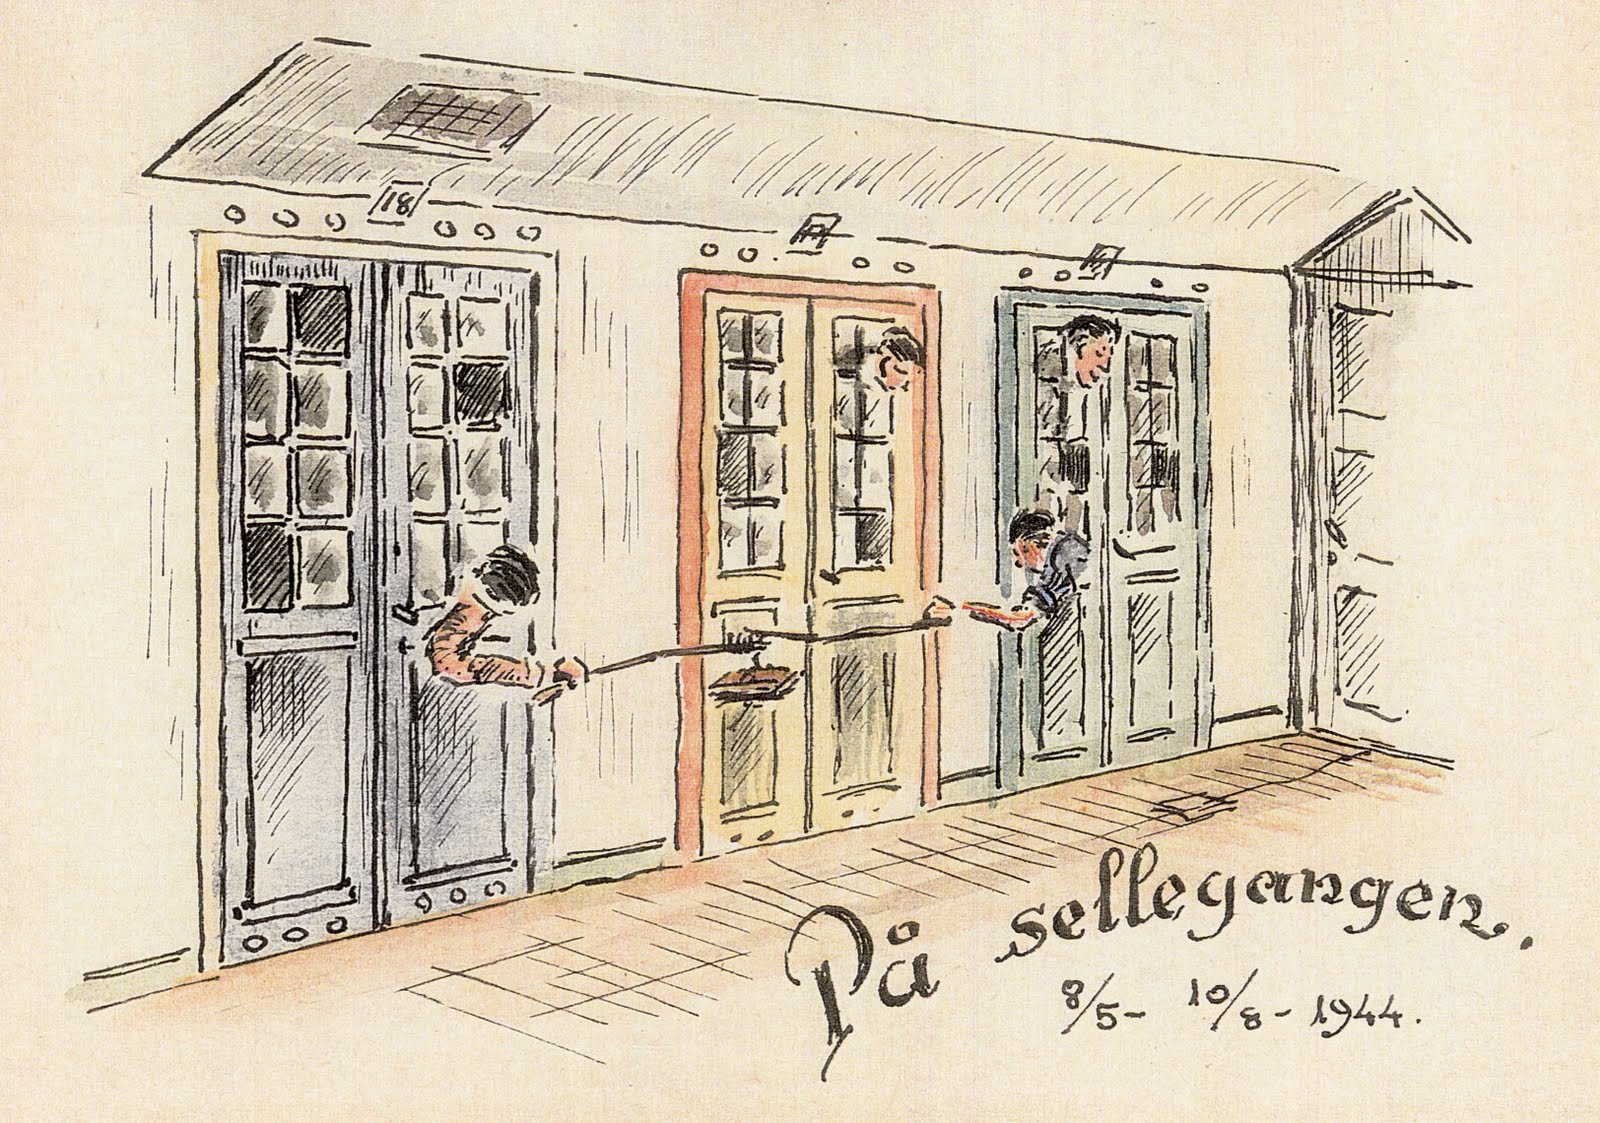 18
På sellegangen.
8/5- 10/8- 1944.